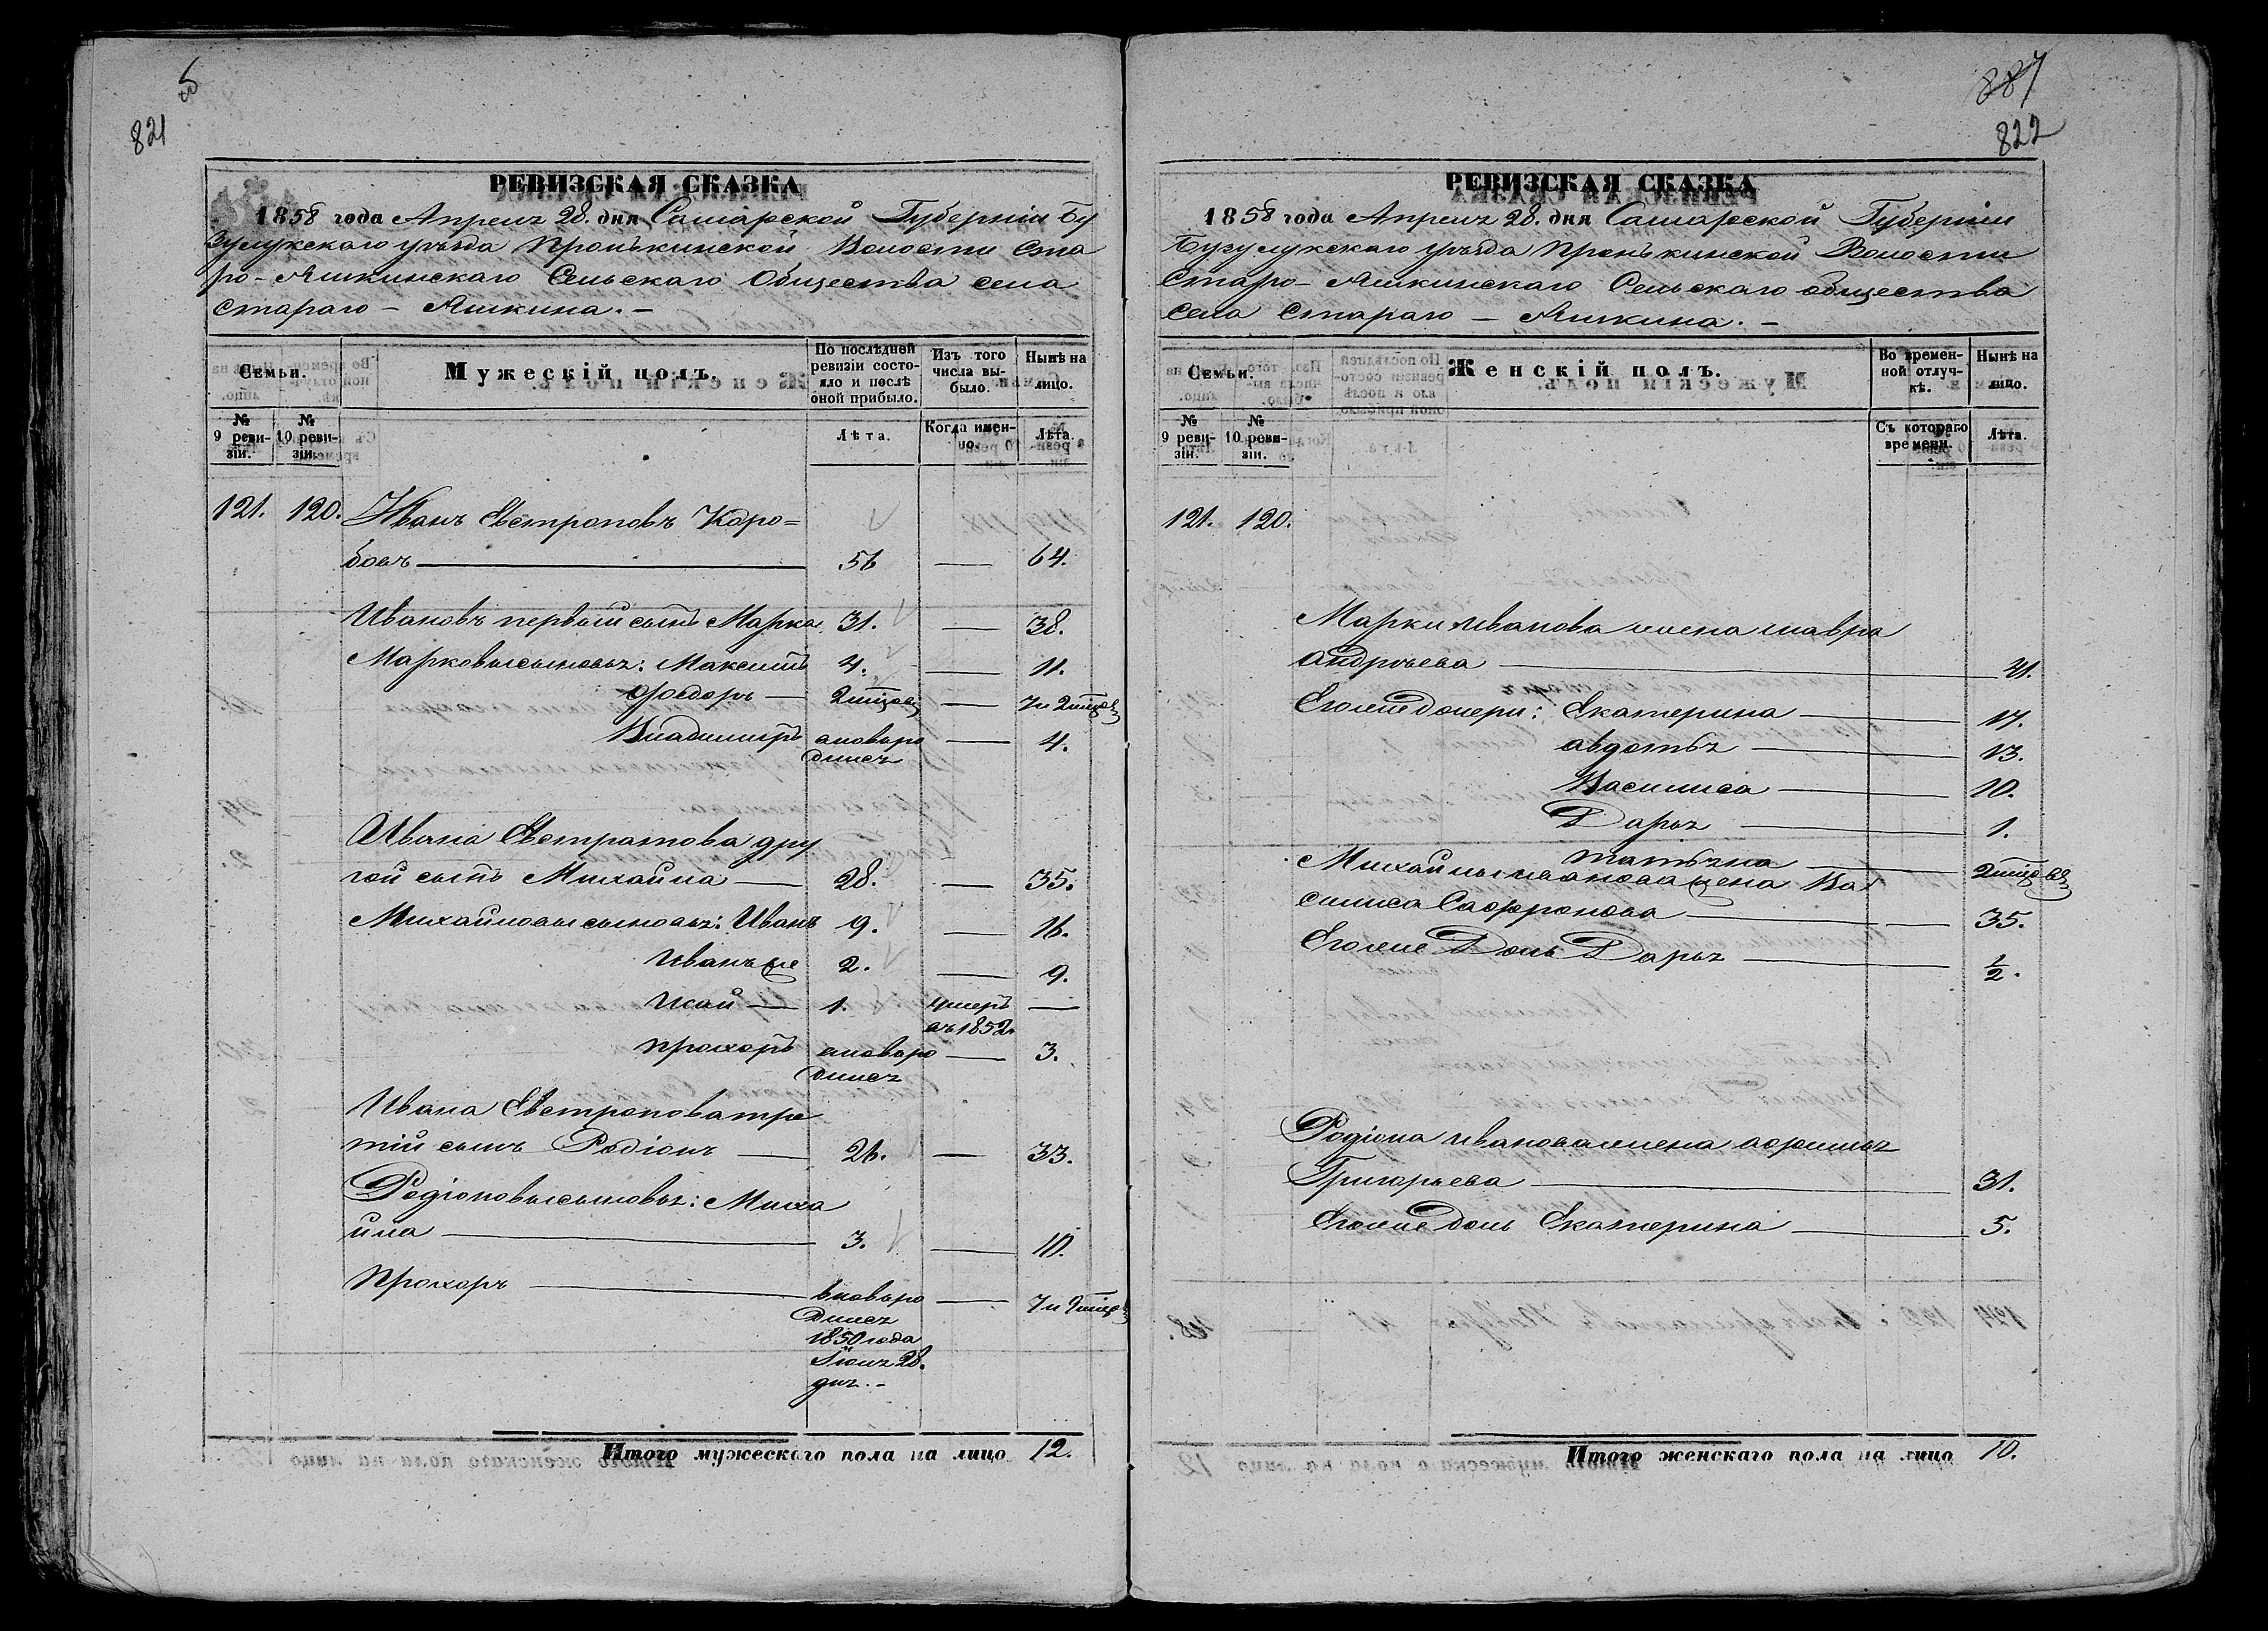 5
821
РЕВИЗСКАЯ СКАЗКА
1858 года Апреля 28. дня Самарской Губерніи Бу
зулукскаго уѣзда Пронькинской Волости Ста
ро-Яшкинскаго Сельскаго Общества села
Стараго-Яшкина.-
Семьи.
Мужескій полъ.
По послѣдней ревизіи состояло и послѣ оной прибыло.
Изъ того числа выбыло.
Нынѣ на лицо.
№ 9 ревизіи.
№ 10 ревизіи.
Лѣта.
Когда именно.
Лѣта.
121. 120. Иванъ Евстроповъ Коро=
бовъ 56 — 64.
Ивановъ первый сынъ Марка 31. — 38.
Марковы сыновья: Максимъ 4. — 11.
Фѣодоръ — 2 мѣсяц — 7 и 2 мѣсяц
Владимиръ вновьро — 4.
дился
Ивана Евстратова дру
гой сынъ Михайла — 28. — 35.
Михайловы сыновья: Иванъ 9. — 16.
Иванъ же 2. — 9.
Исай — 1. умеръ —
въ 1852.
Прохоръ вновьро — 3.
дился
Ивана Евстропова тре
тій сынъ Родіонъ — 26. — 33.
Родіоновы сыновья: Миха
йла — 3. — 10.
Прохоръ — вновьро —
дился
1850 года
28.
дня.-
Итого мужескаго пола на лицо 12.
887
822
РЕВИЗСКАЯ СКАЗКА
1858 года Апреля 28. дня Самарской Губерніи
Бугулукскаго уѣзда Пронькинской Волости
Старо-Яшкинскаго Сельскаго общества
села Стараго-Яшкина.-
Семьи.
Женскій полъ.
Во временной отлучкѣ.
Нынѣ на лицо.
№ 9 ревизіи.
№ 10 ревизіи.
Съ котораго времени.
Лѣта.
121. 120.
Марки Иванова жена Мавра
Андрѣева —
Его же дочери: Екатерина — 17.
Авдотья — 13.
Василиса — 10.
Дарья — 1.
Татьяна — 2 мѣсяц
Михайлы Иванова жена Ва
силиса Сафронова — 35.
Его же Дочь Дарья — ½.
Родіона Иванова жена Афимья
Григорьева — 31.
Его же дочь Екатерина — 5.
Итого женскаго пола на лицо 10.